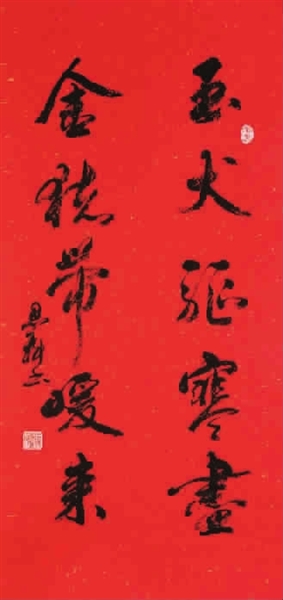 玉犬驱寒盡
金猪带暖来